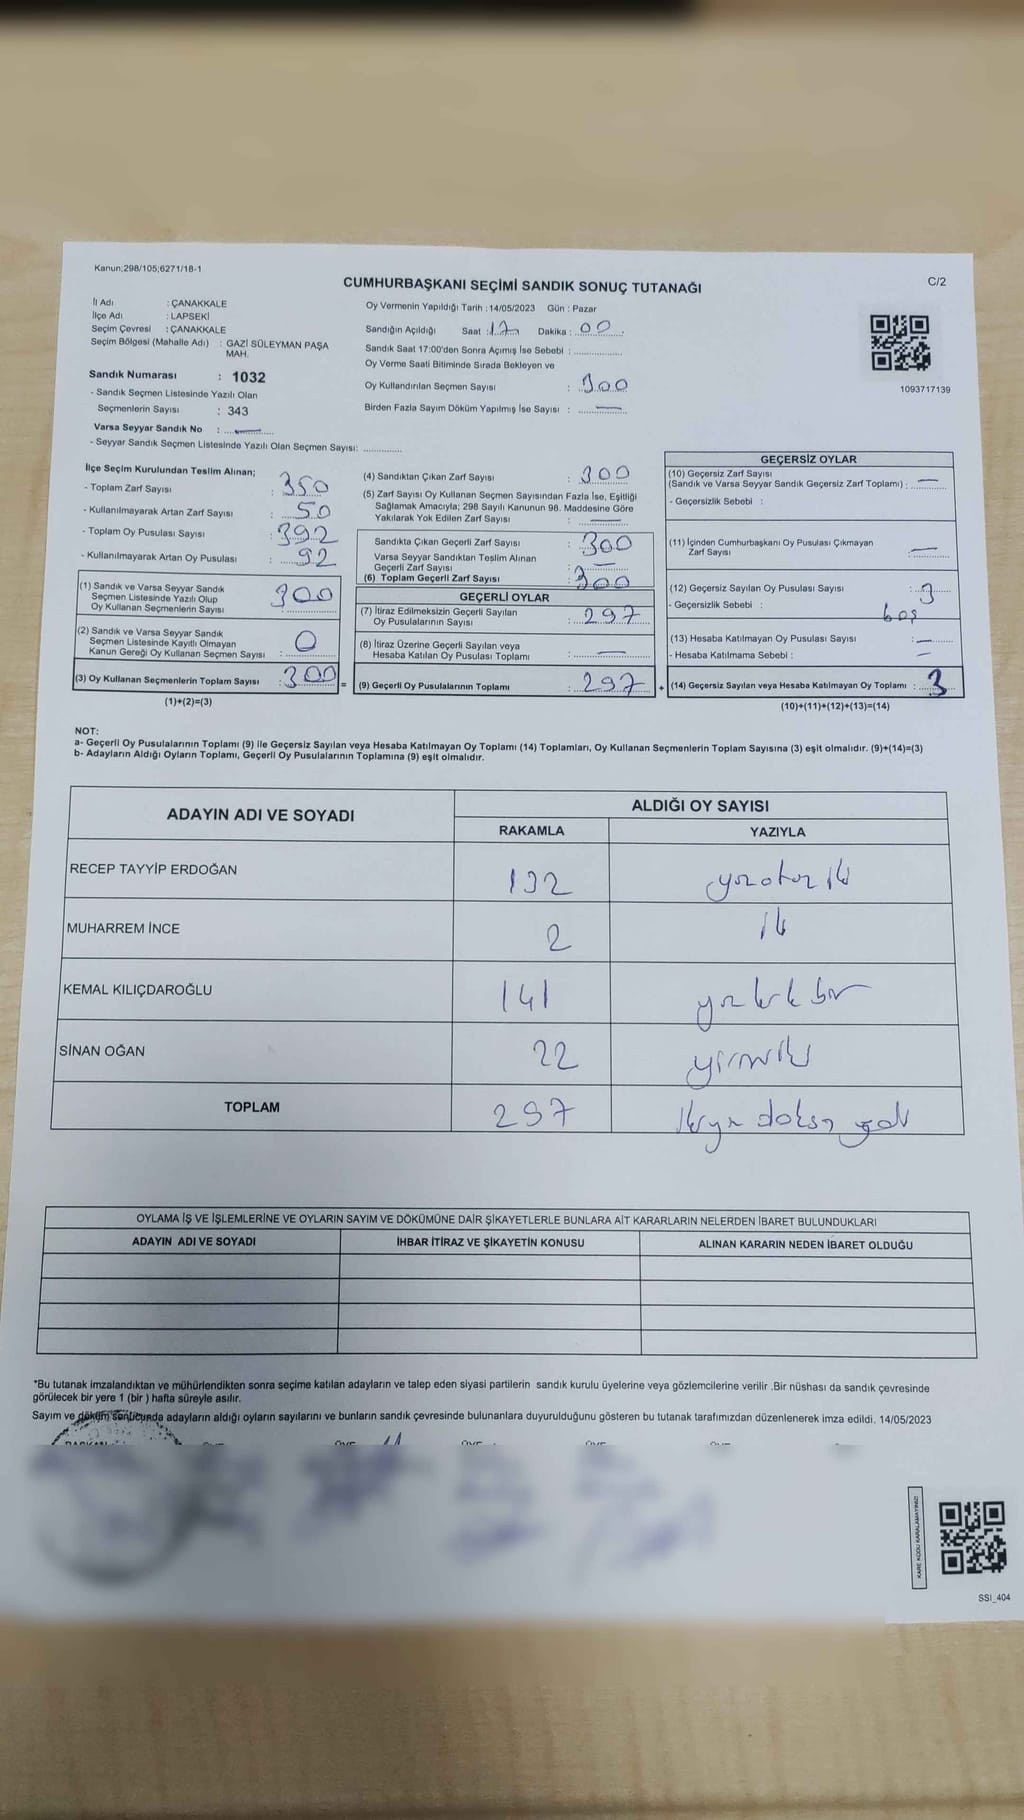 Kanun;298/105;6271/18-1
C/2
CUMHURBAŞKANI SEÇİMİ SANDIK SONUÇ TUTANAĞI
İl Adı : ÇANAKKALE
İlçe Adı : LAPSEKİ
Seçim Çevresi : ÇANAKKALE
Seçim Bölgesi (Mahalle Adı) : GAZİ SÜLEYMAN PAŞA
MAH.
Sandık Numarası : 1032
- Sandık Seçmen Listesinde Yazılı Olan
Seçmenlerin Sayısı : 343
Varsa Seyyar Sandık No : —
- Seyyar Sandık Seçmen Listesinde Yazılı Olan Seçmen Sayısı:
Oy Vermenin Yapıldığı Tarih : 14/05/2023 Gün : Pazar
Sandığın Açıldığı Saat : 17 Dakika : 00
Sandık Saat 17:00'den Sonra Açımış İse Sebebi :
Oy Verme Saati Bitiminde Sırada Bekleyen ve
Oy Kullandırılan Seçmen Sayısı : 300
Birden Fazla Sayım Döküm Yapılmış İse Sayısı : —
1093717139
İlçe Seçim Kurulundan Teslim Alınan;
- Toplam Zarf Sayısı : 350
- Kullanılmayarak Artan Zarf Sayısı : 50
- Toplam Oy Pusulası Sayısı : 392
- Kullanılmayarak Artan Oy Pusulası : 92
(1) Sandık ve Varsa Seyyar Sandık
Seçmen Listesinde Yazılı Olup
Oy Kullanan Seçmenlerin Sayısı : 300
(2) Sandık ve Varsa Seyyar Sandık
Seçmen Listesinde Kayıtlı Olmayan
Kanun Gereği Oy Kullanan Seçmen Sayısı : 0
(3) Oy Kullanan Seçmenlerin Toplam Sayısı : 300 =
(1)+(2)=(3)
(4) Sandıktan Çıkan Zarf Sayısı : 300
(5) Zarf Sayısı Oy Kullanan Seçmen Sayısından Fazla İse, Eşitliği
Sağlamak Amacıyla; 298 Sayılı Kanunun 98. Maddesine Göre
Yakılarak Yok Edilen Zarf Sayısı : —
Sandıkta Çıkan Geçerli Zarf Sayısı : 300
Varsa Seyyar Sandıktan Teslim Alınan
Geçerli Zarf Sayısı : —
(6) Toplam Geçerli Zarf Sayısı : 300
GEÇERLİ OYLAR
(7) İtiraz Edilmeksizin Geçerli Sayılan
Oy Pusulalarının Sayısı : 297
(8) İtiraz Üzerine Geçerli Sayılan veya
Hesaba Katılan Oy Pusulası Toplamı : —
(9) Geçerli Oy Pusulalarının Toplamı : 297 +
GEÇERSİZ OYLAR
(10) Geçersiz Zarf Sayısı
(Sandık ve Varsa Seyyar Sandık Geçersiz Zarf Toplamı) : —
- Geçersizlik Sebebi :
(11) İçinden Cumhurbaşkanı Oy Pusulası Çıkmayan
Zarf Sayısı : —
(12) Geçersiz Sayılan Oy Pusulası Sayısı : 3
- Geçersizlik Sebebi : boş
(13) Hesaba Katılmayan Oy Pusulası Sayısı : —
- Hesaba Katılmama Sebebi : —
(14) Geçersiz Sayılan veya Hesaba Katılmayan Oy Toplamı : 3
(10)+(11)+(12)+(13)=(14)
NOT:
a- Geçerli Oy Pusulalarının Toplamı (9) ile Geçersiz Sayılan veya Hesaba Katılmayan Oy Toplamı (14) Toplamları, Oy Kullanan Seçmenlerin Toplam Sayısına (3) eşit olmalıdır. (9)+(14)=(3)
b- Adayların Aldığı Oyların Toplamı, Geçerli Oy Pusulalarının Toplamına (9) eşit olmalıdır.
ADAYIN ADI VE SOYADI ALDIĞI OY SAYISI
RAKAMLA YAZIYLA
RECEP TAYYİP ERDOĞAN 132 yüzotuz iki
MUHARREM İNCE 2 iki
KEMAL KILIÇDAROĞLU 141 yüz kırk bir
SİNAN OĞAN 22 yirmi iki
TOPLAM 297 ikiyüz doksan yedi
OYLAMA İŞ VE İŞLEMLERİNE VE OYLARIN SAYIM VE DÖKÜMÜNE DAİR ŞİKAYETLERLE BUNLARA AİT KARARLARIN NELERDEN İBARET BULUNDUKLARI
ADAYIN ADI VE SOYADI İHBAR İTİRAZ VE ŞİKAYETİN KONUSU ALINAN KARARIN NEDEN İBARET OLDUĞU
*Bu tutanak imzalandıktan ve mühürlendikten sonra seçime katılan adayların ve talep eden siyasi partilerin sandık kurulu üyelerine veya gözlemcilerine verilir .Bir nüshası da sandık çevresinde
görülecek bir yere 1 (bir ) hafta süreyle asılır.
Sayım ve döküm sonucunda adayların aldığı oyların sayılarını ve bunların sandık çevresinde bulunanlara duyurulduğunu gösteren bu tutanak tarafımızdan düzenlenerek imza edildi. 14/05/2023
BAŞKAN ÜYE ÜYE ÜYE
KARE KODU KARALAMAYINIZ!
SSI_404